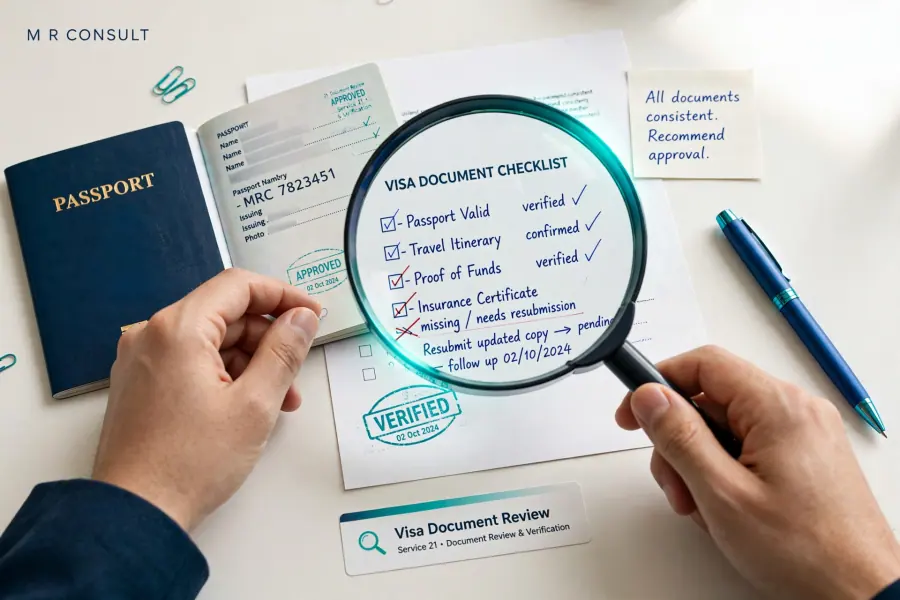 M R CONSULT
PASSPORT
PASSPORT
Name
Name
Name
Passport Nambry
- MRC 7823451
Issuing
Issuing
Photo
Document Review
APPROVED
Service 21 •
& Verification
APPROVED
02 Oct 2024
VISA DOCUMENT CHECKLIST
- Passport Valid verified ✓
- Travel Itinerary confirmed ✓
- Proof of Funds verified ✓
- Insurance Certificate
missing / needs resubmission
Resubmit updated copy → pending
follow up 02/10/2024
VERIFIED
02 Oct 2024
All documents
consistent.
Recommend
approval.
Visa Document Review
Service 21 • Document Review & Verification